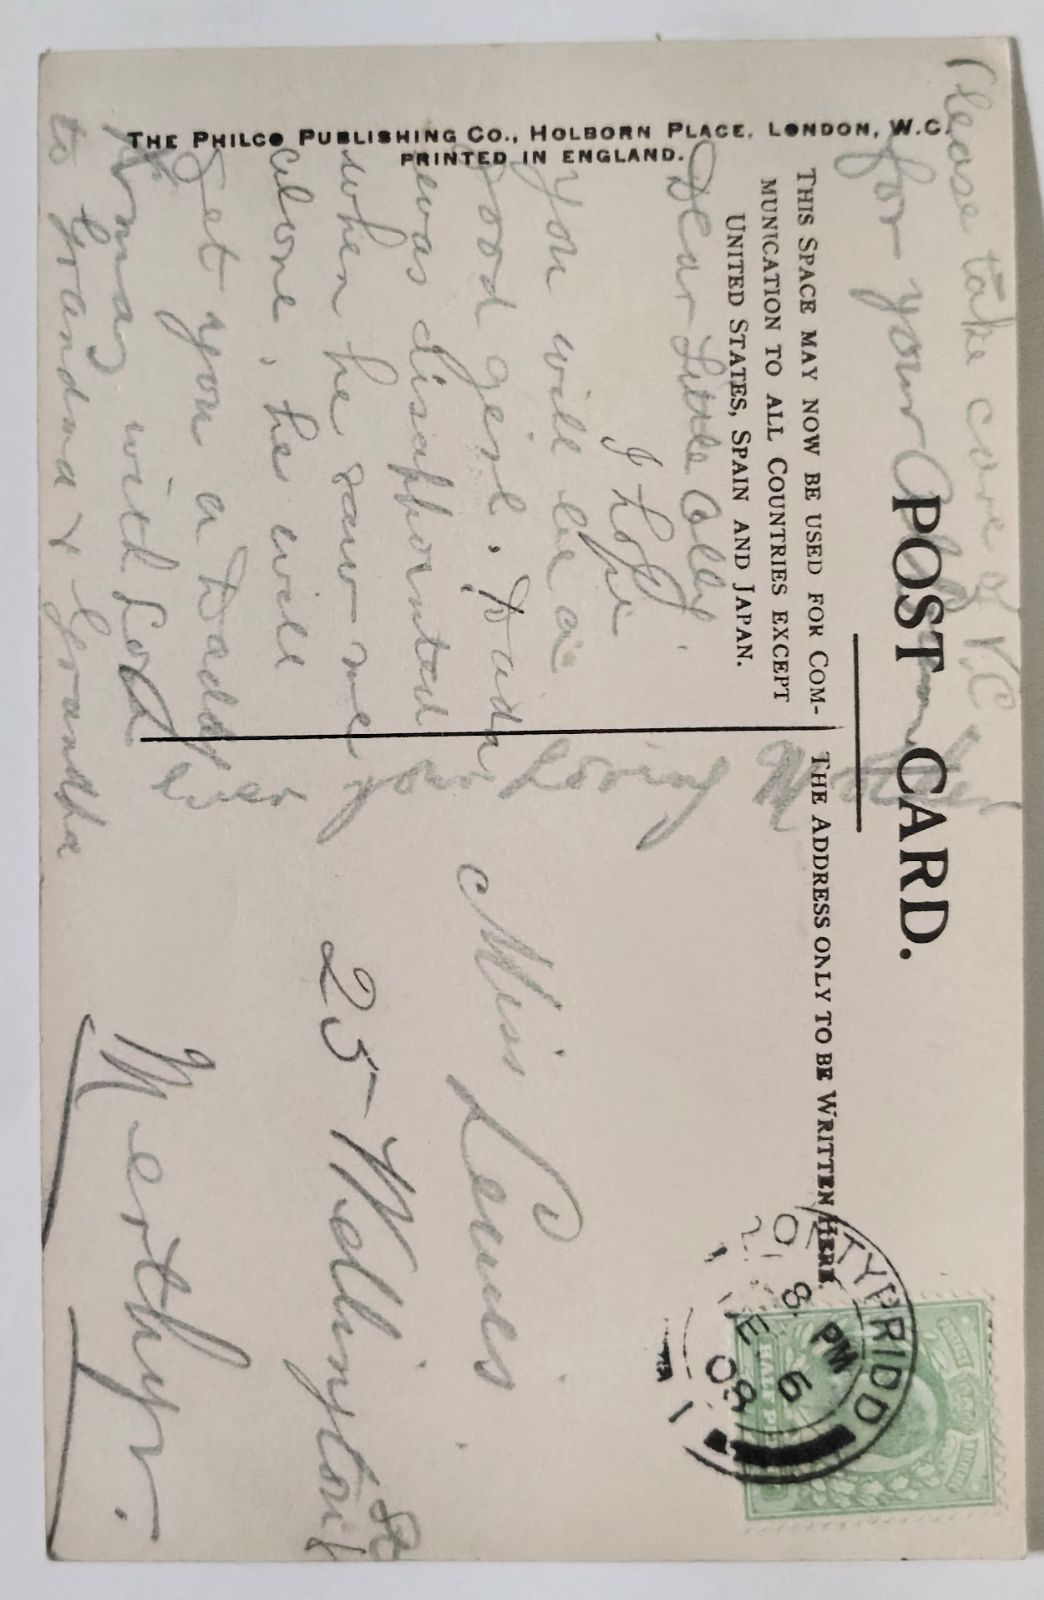 Please take care of V.C
for your
POST CARD.
THE PHILCO PUBLISHING CO., HOLBORN PLACE, LONDON, W.C.
PRINTED IN ENGLAND.
THIS SPACE MAY NOW BE USED FOR COM-
MUNICATION TO ALL COUNTRIES EXCEPT
UNITED STATES, SPAIN AND JAPAN.
THE ADDRESS ONLY TO BE WRITTEN HERE.
Dear Little Olly
I hope
you will be a
good girl. Dada
was disappointed
when he saw me
alone, he will
get you a Daddy
Xmas with love
to Grandma & Grandpa
your loving
Miss Lewis
25 Wellington St
Merthyr.
PONTYPRIDD
8 PM
DE 6
08